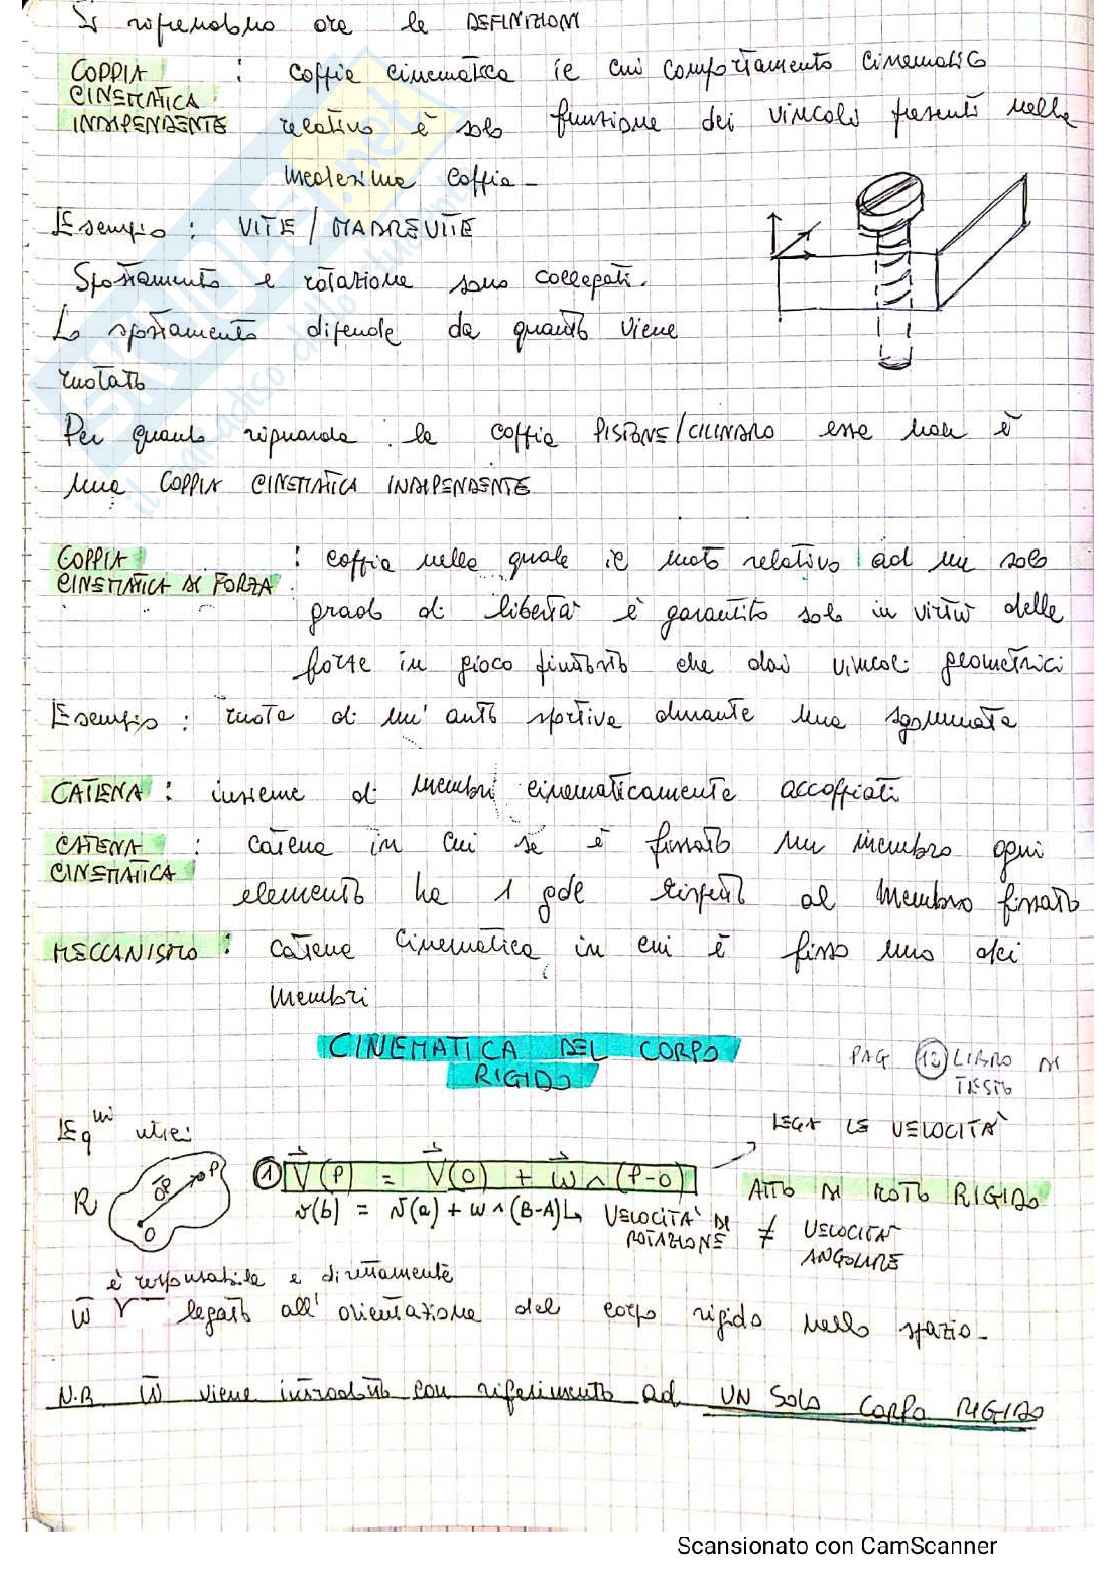 Si riprendono ora le DEFINIZIONI
COPPIA CINEMATICA INDIPENDENTE : coppia cinematica il cui comportamento cinematico
relativo è solo funzione dei vincoli presenti nella
medesima coppia -
Esempio : VITE / MADREVITE
Spostamento e rotazione sono collegati.
Lo spostamento dipende da quanto viene
ruotato
Per quanto riguarda la coppia PISTONE/CILINDRO essa non è
una COPPIA CINEMATICA INDIPENDENTE
COPPIA CINEMATICA DI FORZA : coppia nella quale il moto relativo ad un solo
grado di libertà è garantito solo in virtù delle
forze in gioco piuttosto che dai vincoli geometrici
Esempio : ruota di un'auto sportiva durante una sgommata
CATENA : insieme di membri cinematicamente accoppiati
CATENA CINEMATICA : catena in cui se è fissato un membro ogni
elemento ha 1 gdl rispetto al membro fissato
MECCANISMO : catena cinematica in cui è fisso uno dei
membri
CINEMATICA DEL CORPO
RIGIDO
PAG 12 LIBRO DI
TESTO
Eq^ni utili
LEGA LE VELOCITÀ
R O P OP
① V(P) = V(O) + ω ∧ (P-O)
ATTO DI MOTO RIGIDO
v(b) = v(a) + ω ∧ (B-A)
↳ VELOCITÀ DI ROTAZIONE ≠ VELOCITÀ ANGOLARE
è responsabile e direttamente
ω legato all'orientazione del corpo rigido nello spazio -
N.B. ω viene introdotto con riferimento ad UN SOLO CORPO RIGIDO
SKUOLA.net
il paradiso dello studente
Scansionato con CamScanner